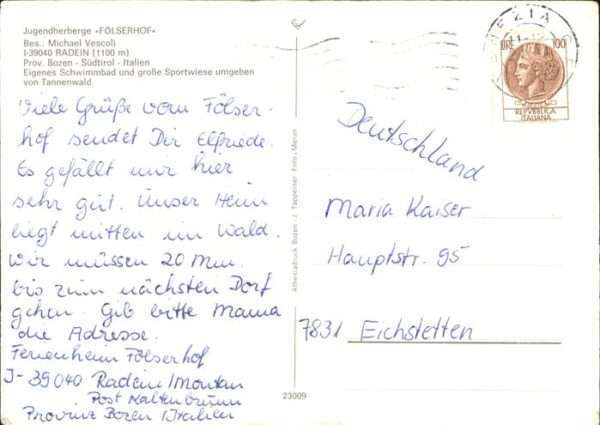 Jugendherberge «FÖLSERHOF»
Bes.: Michael Vescoli
I-39040 RADEIN (1100 m)
Prov. Bozen - Südtirol - Italien
Eigenes Schwimmbad und große Sportwiese umgeben
von Tannenwald.
Viele Grüße vom Fölser-
hof sendet Dir Elfriede.
Es gefällt mir hier
sehr gut. Unser Heim
liegt mitten im Wald.
Wir müssen 20 Min.
bis zum nächsten Dorf
gehen. Gib bitte Mama
die Adresse.
Ferienheim Fölserhof
I-39040 Radein/Montan
Post Kaltenbrunn
Provinz Bozen/Italien
Athesiadruck Bozen - J. Tappeiner Foto, Meran
23009
LIRE 100
REPVBBLICA
ITALIANA
Deutschland
Maria Kaiser
Hauptstr. 95
7831 Eichstetten